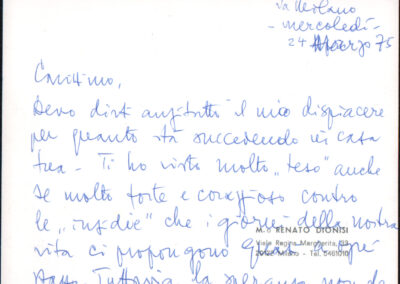 da Milano
- mercoledì -
24 Marzo 75
Carissimo,
devo dirti anzitutto il mio dispiacere
per quanto sta succedendo in casa
tua - Ti ho visto molto "teso" anche
se molto forte e coraggioso contro
le "insidie" che i giorni della nostra
M.o RENATO DIONISI
vita ci propongono quasi ad ogni
Viale Regina Margherita,
20122 Milano - Tel. 5461010
passo. Tuttavia la speranza non de